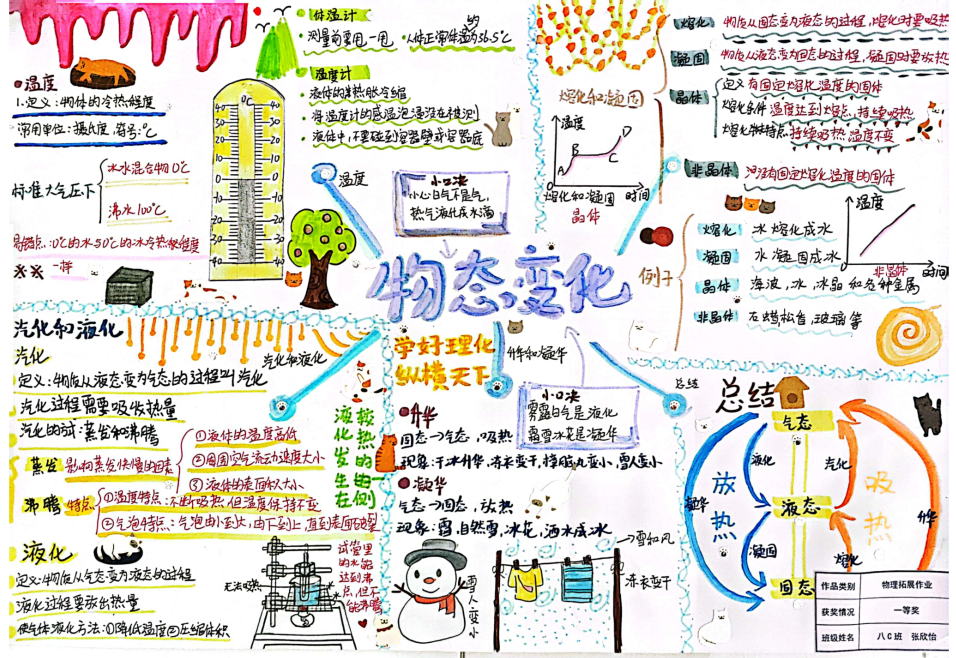 体温计
测量前要甩一甩
人体正常体温约36.5℃
温度
1.定义：物体的冷热程度
常用单位：摄氏度，符号：℃
标准大气压下
冰水混合物0℃
沸水100℃
易错点：0℃的水与0℃的冰冷热程度
一样
温度计
液体的热胀冷缩
将温度计的感温泡浸没在被测
液体中，不要碰到容器壁或容器底
℃
温度
小口决
小心白气不是气，
热气液化成水滴
物态变化
熔化和凝固
温度
A
B
C
D
时间
熔化和凝固
晶体
熔化
物质从固态变为液态的过程，熔化时要吸热
凝固
物质从液态变为固态的过程，凝固时要放热
晶体
定义 有固定熔化温度的固体
熔化条件 温度达到熔点，持续吸热
熔化特点 持续吸热 温度不变
非晶体
没有固定熔化温度的固体
例子
熔化
冰熔化成水
凝固
水凝固成冰
晶体
海波，冰，水晶和各种金属
非晶体
石蜡，松香，玻璃等
温度
非晶体
时间
汽化和液化
汽化和液化
汽化
定义：物质从液态变为气态的过程叫汽化
汽化过程需要吸收热量
汽化的方式：蒸发和沸腾
蒸发
影响蒸发快慢的因素
①液体的温度高低
②周围空气流动速度大小
③液体的表面积大小
沸腾
特点
①温度特点：不断吸热，但温度保持不变
②气泡特点：气泡由小到大，由下到上，直到表面破裂
液化
定义：物质从气态变为液态的过程
液化过程要放出热量
使气体液化方法：①降低温度②压缩体积
无法吸热
试管里
的水能
达到沸
点，但不
能沸腾
学好理化
纵横天下
升华和凝华
小口决
雾露白气是液化
霜雪冰花是凝华
升华
固态→气态，吸热
现象：干冰升华，冻衣变干，樟脑丸变小，雪人变小
凝华
气态→固态，放热
现象：霜，自然雪，冰花，洒水成冰
雪人变小
雪和风
冻衣变干
总结
总结
气态
液态
固态
液化
凝固
凝华
放热
汽化
熔化
升华
吸热
作品类别 物理拓展作业
获奖情况 一等奖
班级姓名 八C班 张欣怡